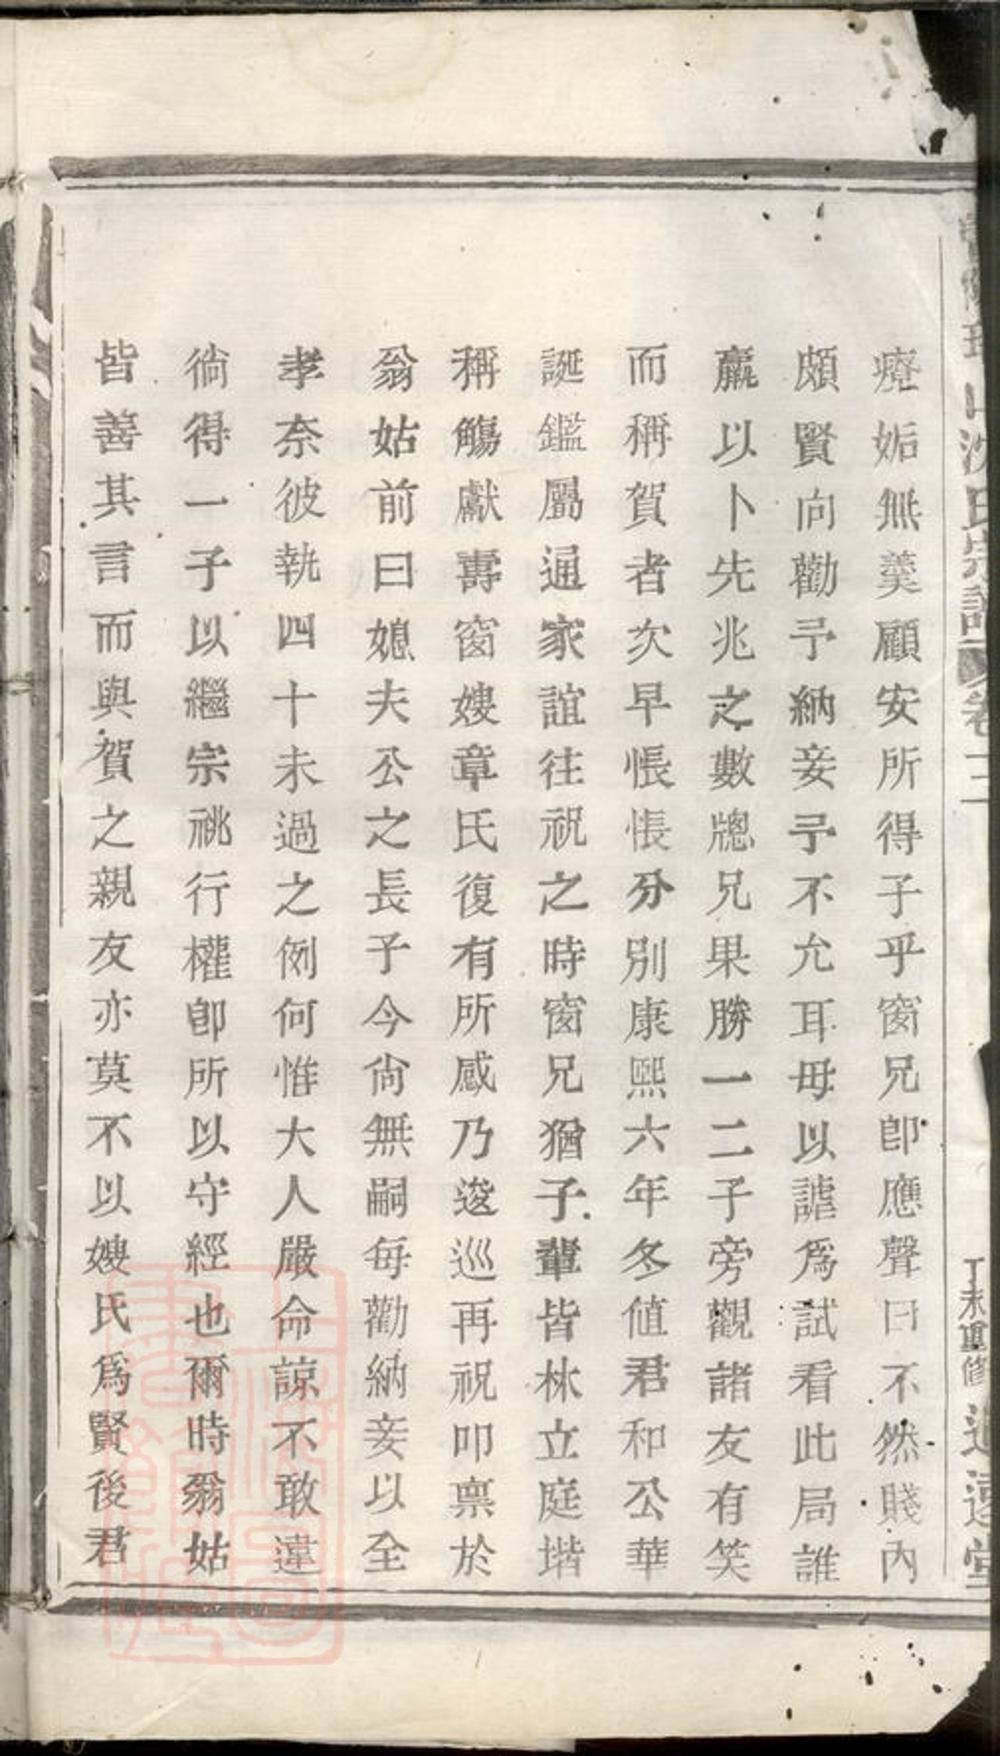 癡妬無羹顧安所得子乎窗兄卽應聲曰不然賤內
頗賢向勸予納妾予不允耳毋以謔爲試看此局誰
贏以卜先兆之數牕兄果勝一二子旁觀諸友有笑
而稱賀者次早悵悵分別康熙六年冬值君和公華
誕鑑屬通家誼往祝之時窗兄猶子輩皆林立庭堦
稱觴獻壽窗嫂章氏復有所感乃逡巡再祝叩禀於
翁姑前曰媳夫公之長子今尙無嗣每勸納妾以全
孝奈彼執四十未過之例何惟大人嚴命諒不敢違
徜得一子以繼宗祧行權卽所以守經也爾時翁姑
皆善其言而與賀之親友亦莫不以嫂氏爲賢後君
山沈氏宗譜 卷二
丁未重修 追遠堂